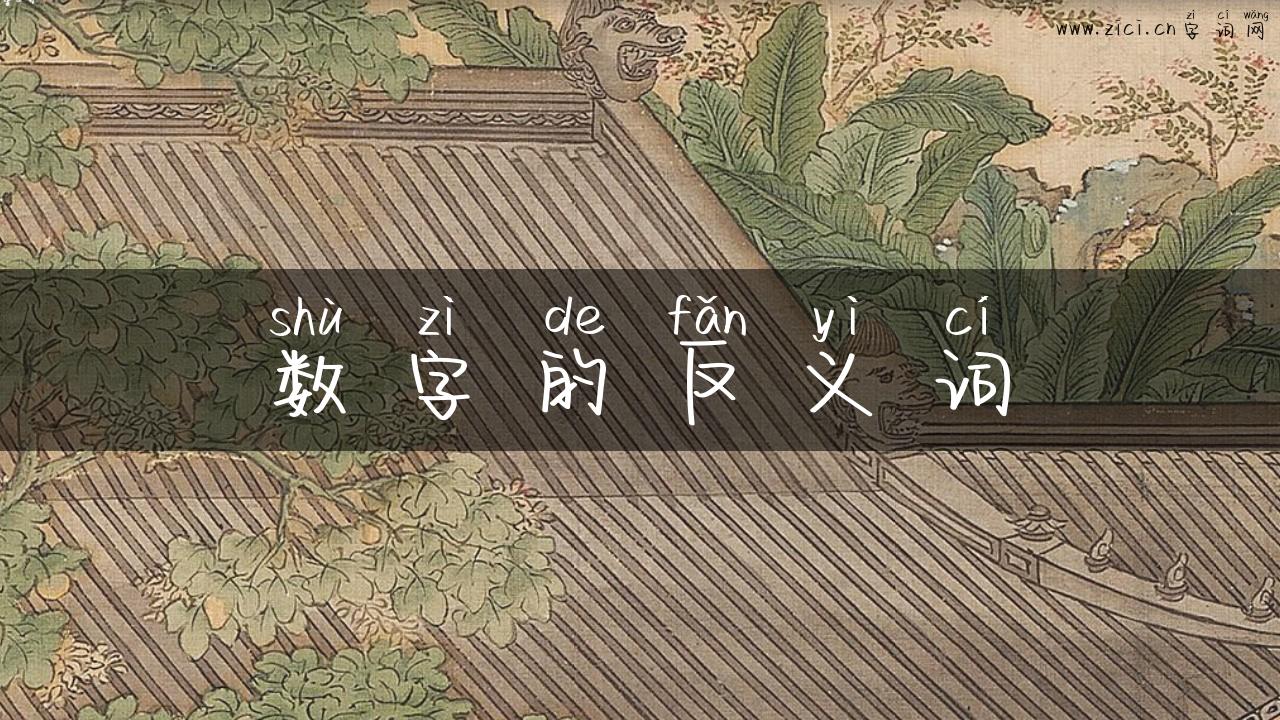 zì cí wǎng
www.zici.cn 字词网
shù zì de fǎn yì cí
数字的反义词